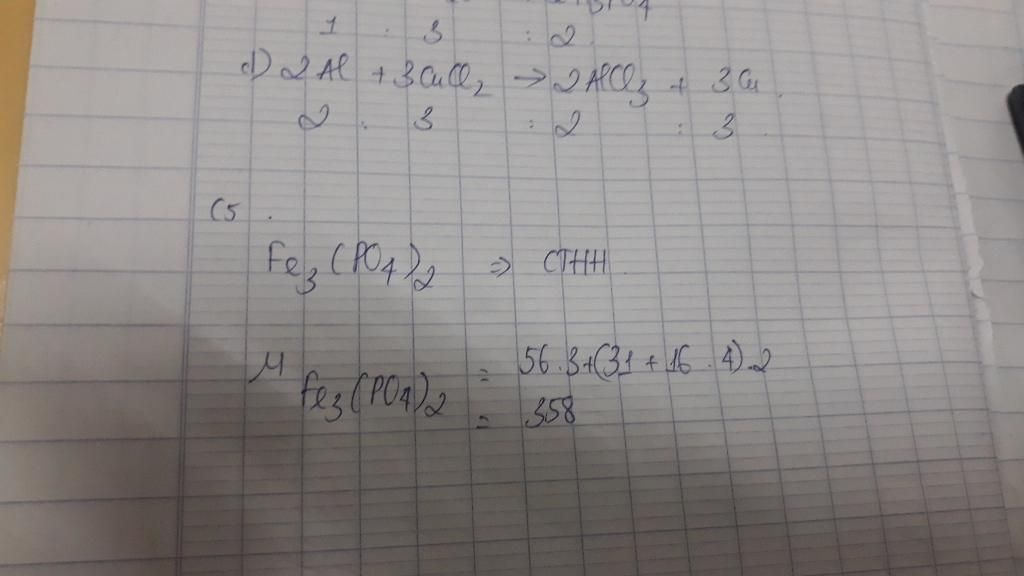 1 : 3 : 2
d) 2Al + 3CuCl2 → 2AlCl3 + 3Cu.
2 : 3 : 2 : 3
C5.
Fe3(PO4)2 ⇒ CTHH
M Fe3(PO4)2 = 56.3+(31 + 16.4).2
= 358